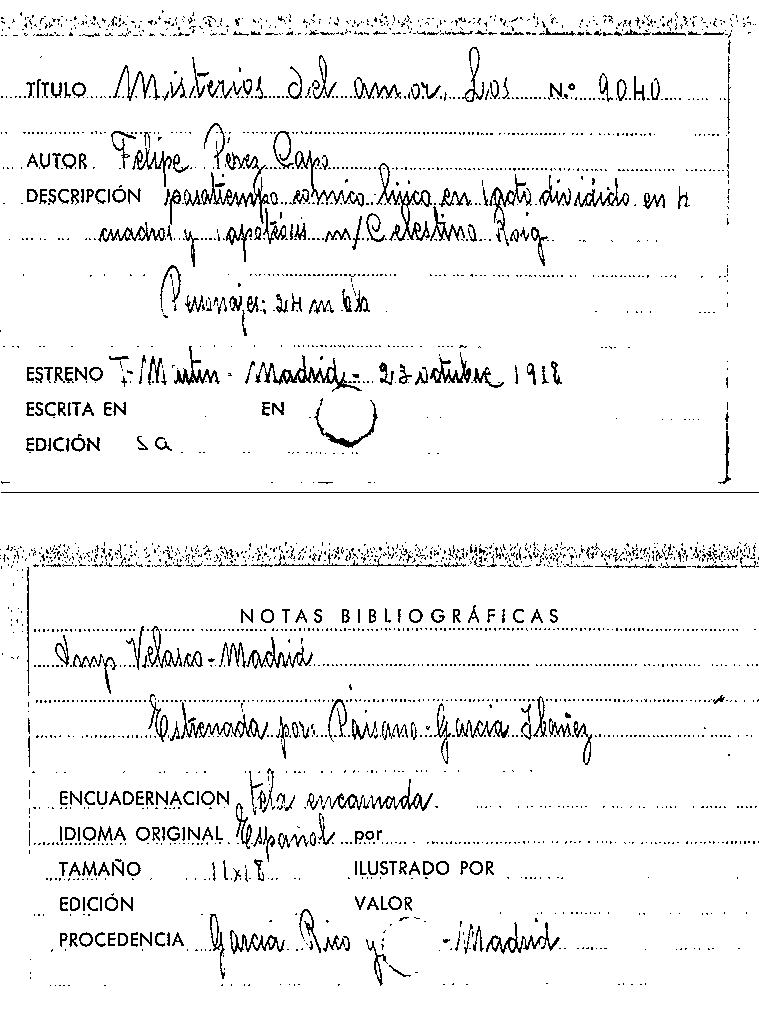 TÍTULO Misterios del amor, Los N.º 9040
AUTOR Felipe Pérez Capo
DESCRIPCIÓN pasatiempo cómico lírico en 1 acto dividido en 4
cuadros y 1 apoteosis m/ Celestino Roig
Personajes: 24 m 6 h
ESTRENO T- Martin - Madrid - 23 octubre 1918
ESCRITA EN EN
EDICIÓN s a
NOTAS BIBLIOGRÁFICAS
Imp Velasco - Madrid
Estrenada por: Paisano - Garcia Ibañez
ENCUADERNACION tela encarnada.
IDIOMA ORIGINAL Español por
TAMAÑO 11x18 ILUSTRADO POR
EDICIÓN VALOR
PROCEDENCIA Garcia Rico y - Madrid